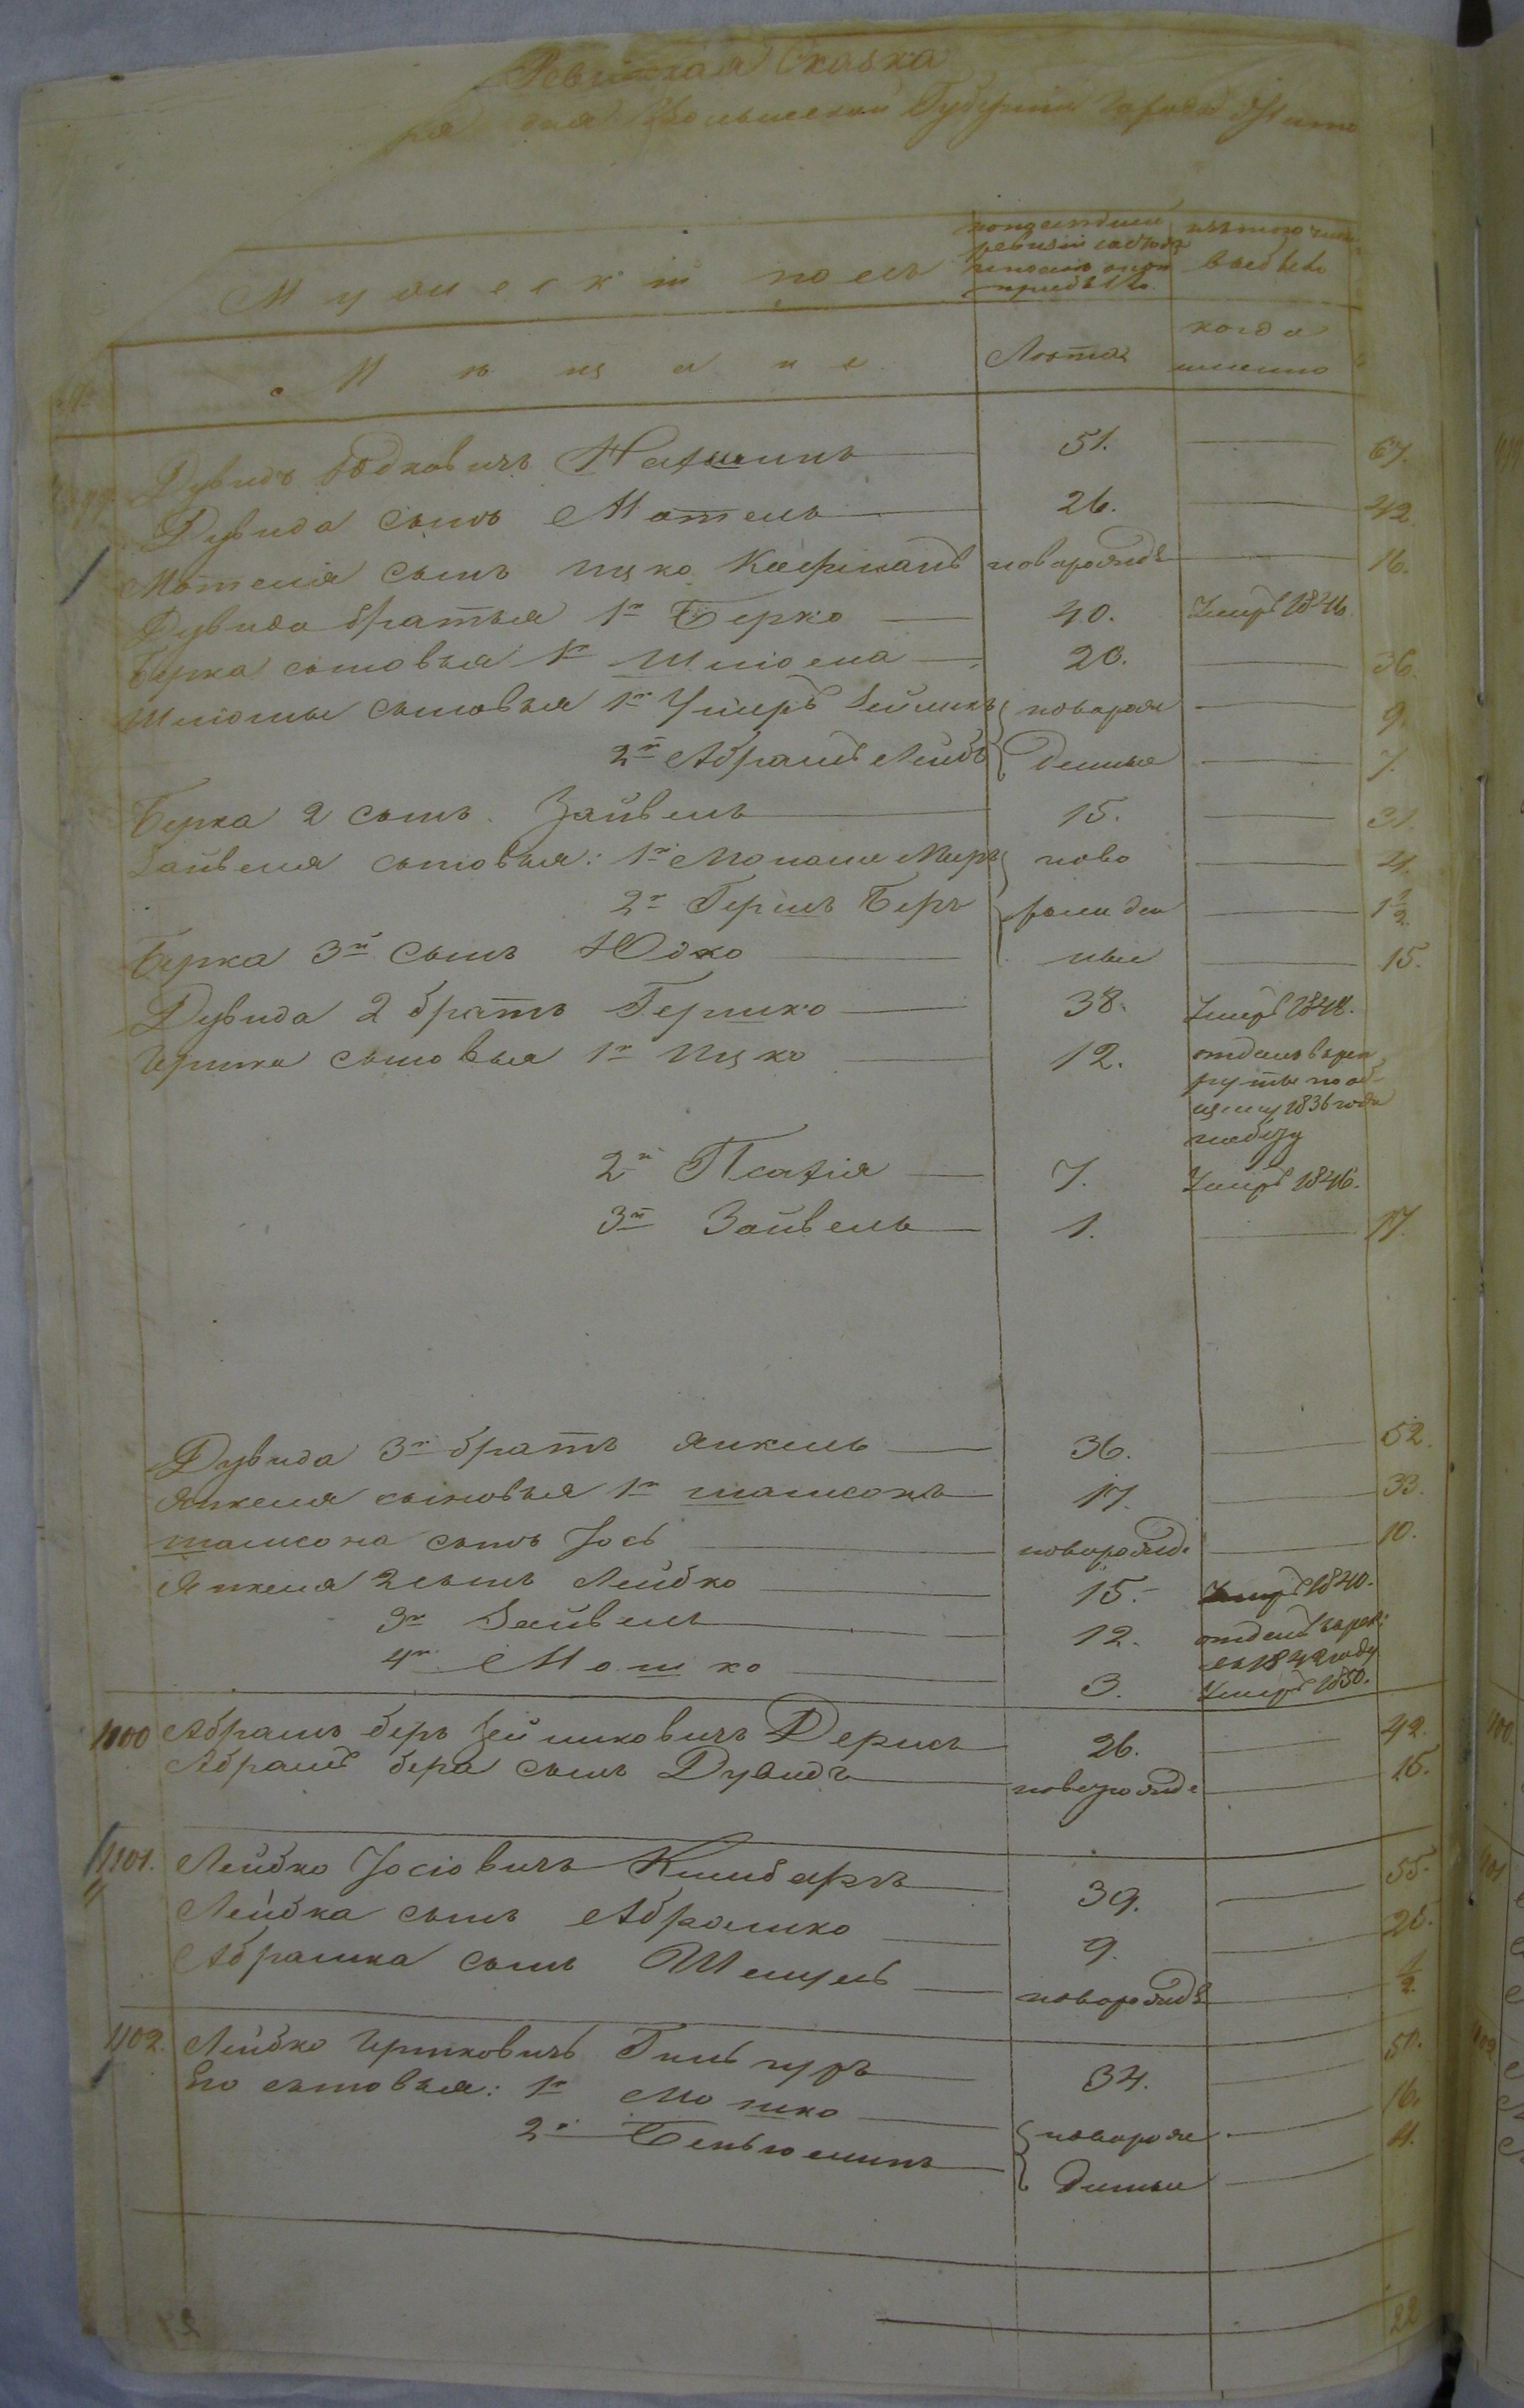 Ревизская Сказка
Волынской Губернии Города
Мужеский полъ
ревизіи
выбыло
Мѣщане
Лѣта
когда именно
Дувидъ Юдковичъ 51. 67.
Дувида сынъ Мотель 26. 42.
Мотеля сынъ Ицко новорожд 16.
Дувида братья 1й Берко 40. Умеръ 1846
Берка сыновья 1й Шлиома 20. 36.
Шлиомы сыновья 1й Умеръ Зейликъ новорож 9.
2й Абрамъ Лейбъ денные 7.
Берка 2 сынъ Зайвель 15. 31.
Зайвеля сыновья: 1й Меръ ново 4.
2й Гершъ Беръ рожден 1 1/2
Берка 3й сынъ Юдко ные 15.
Дувида 2 братъ Гершко 38. Умеръ 1848.
Ершка сыновья 1й Ицко 12. отданъ в рек
руты по об
щему 1836 года
набору
2й 7. Умеръ 1846.
3й Зайвель 1. 17.
Дувида 3й братъ Янкель 36. 52.
Янкеля сыновья 1й Шамсонъ 17. 33.
Шамсона сынъ Іось новорожд. 10.
Янкеля 2 сынъ Лейбко 15. Умеръ 1840.
3й Зайвель 12. отданъ в рек:
въ 1842 году
4й Мошко 3. Умеръ 1850.
1100 Абрамъ Беръ Зейликовичъ 26. 42.
Абрамъ Бера сынъ Дувидъ новорожд 15.
1101. Лейбко Іосіовичъ 39. 55.
Лейбка сынъ Абрамко 9. 25.
Абрамка сынъ новорожд 1/2.
1102. Лейбко Ершковичъ 34. 50.
Его сыновья: 1й Мошко новорож 16.
2й Беньюминъ денные 4.
22